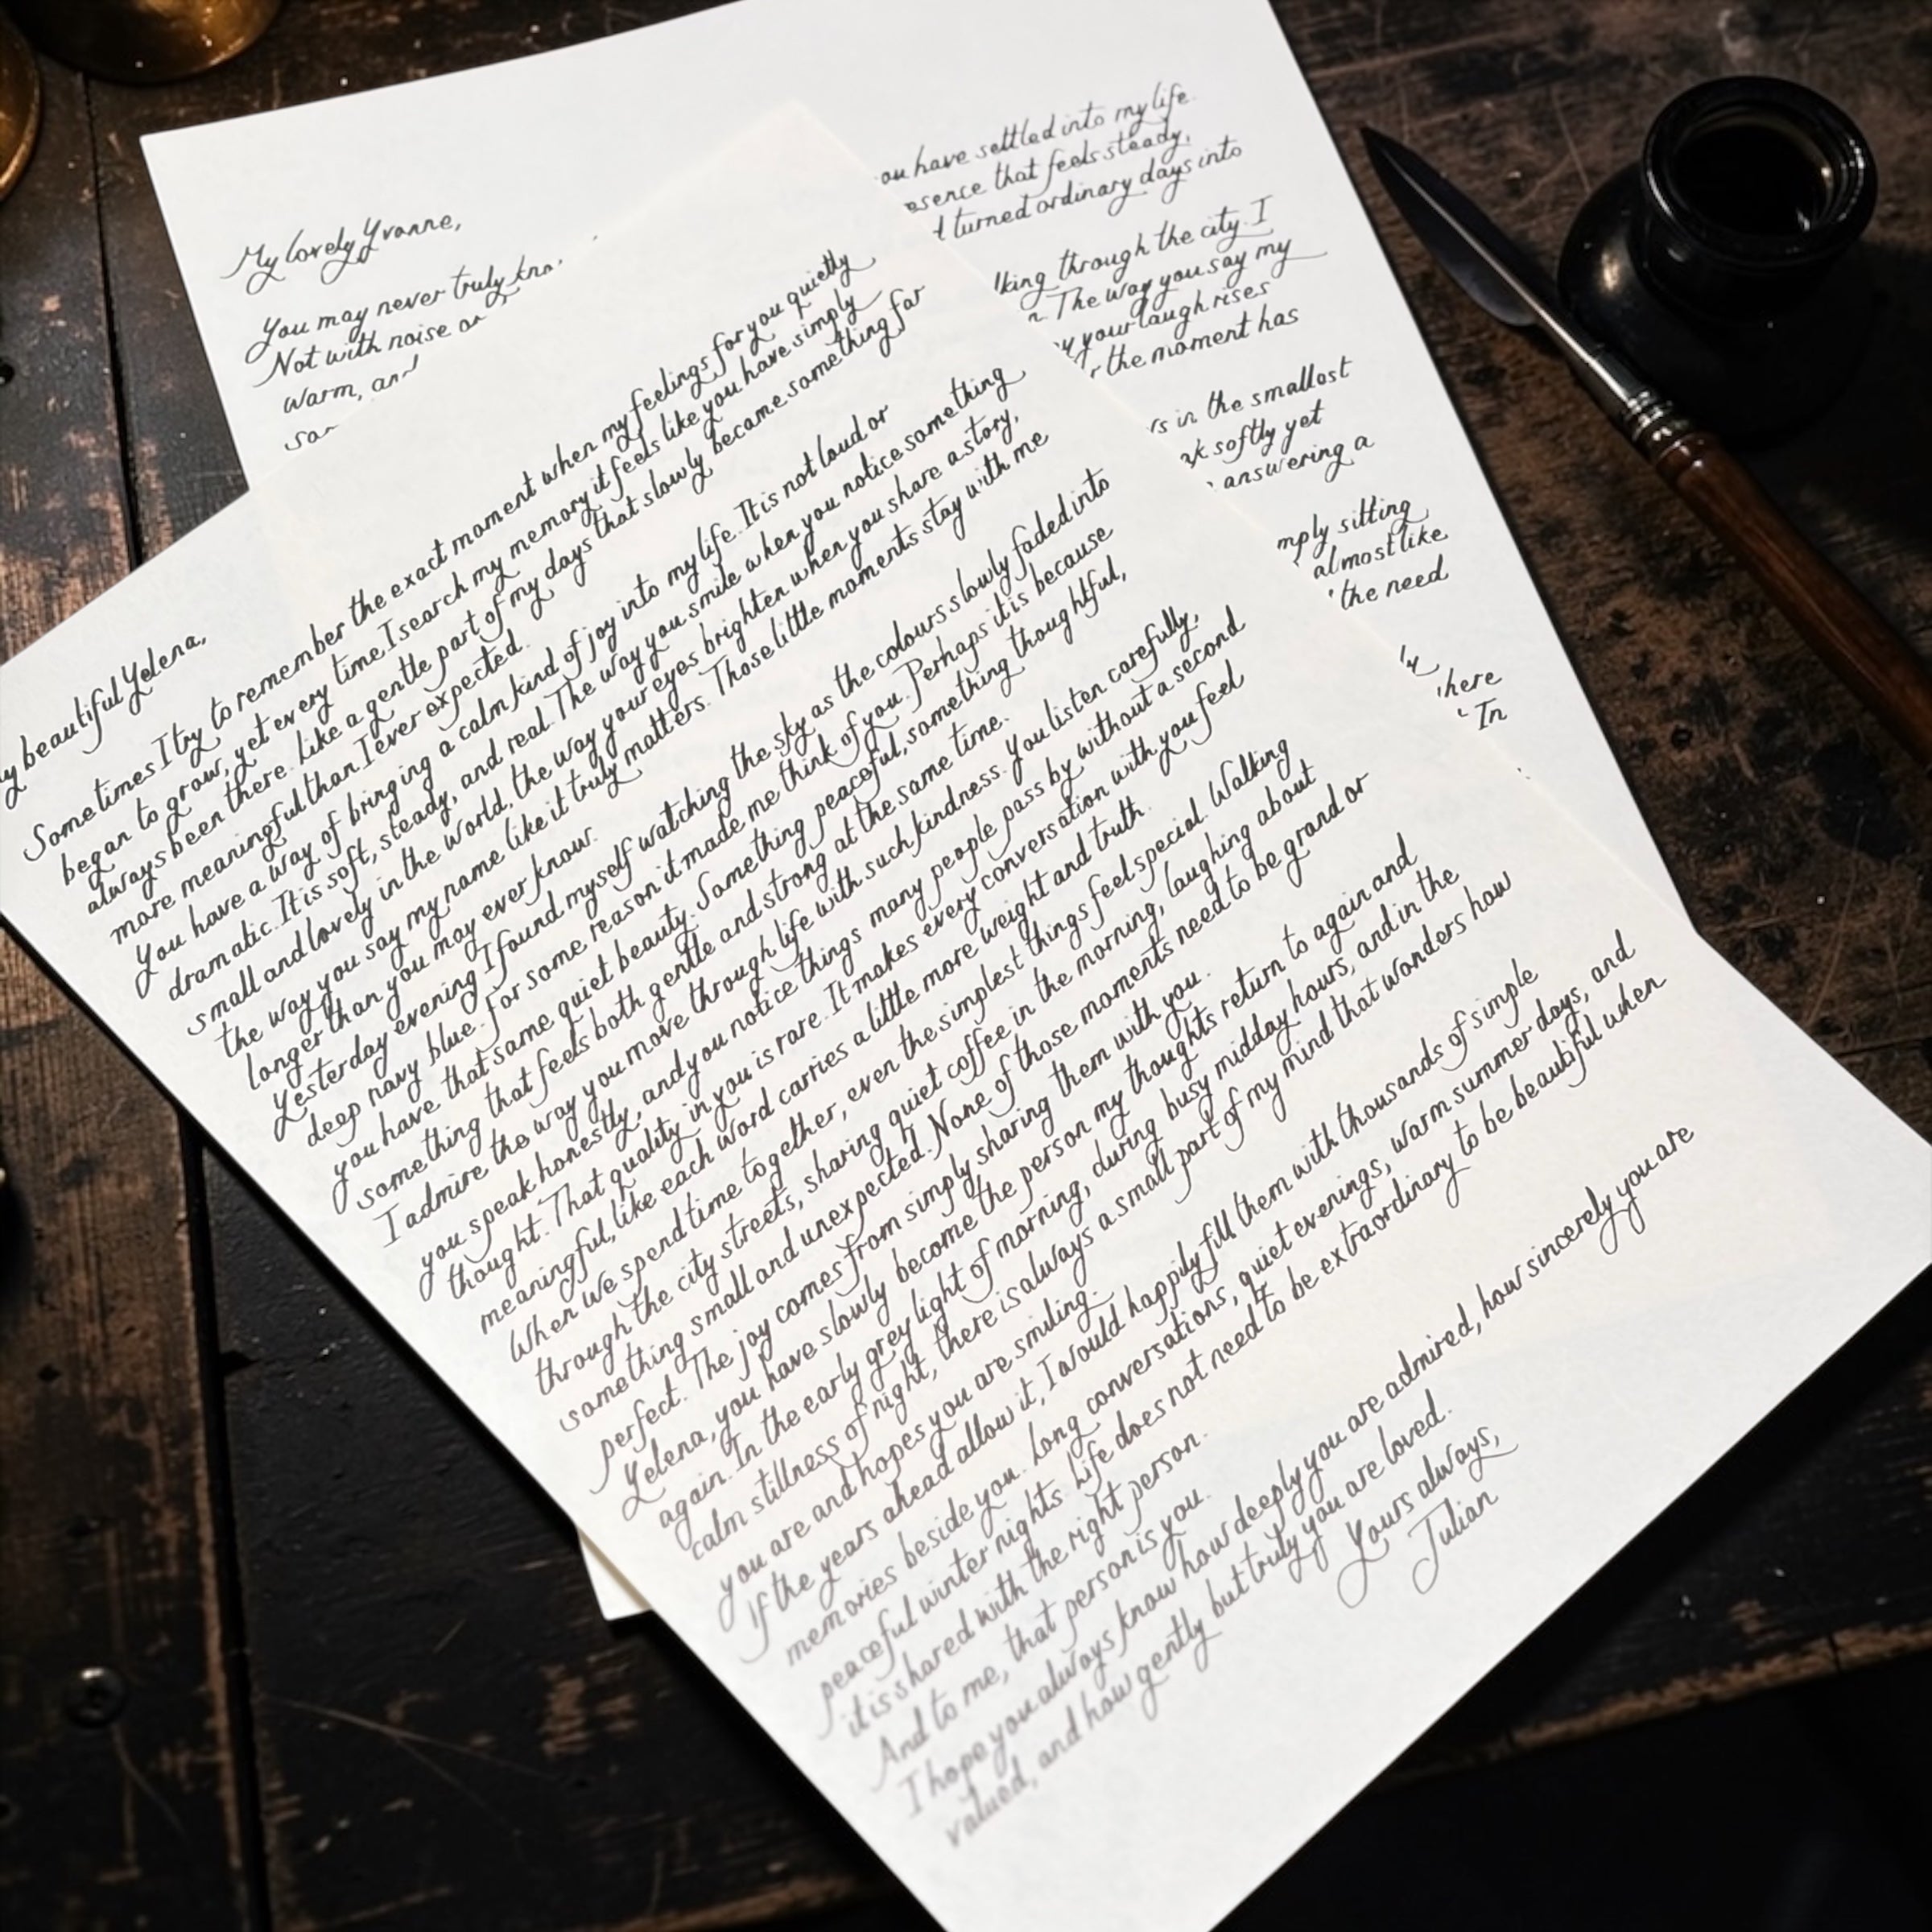 My lovely Yvonne,
You may never truly
ou have settled into my life.
Not with noise
esence that feels steady,
warm,
turned ordinary days into
lking through the city. I
The way you say my
your laugh rises
the moment has
in the smallest
softly yet
answering a
mply sitting
almost like
the need
here
In
y beautiful Yelena,
Sometimes I try to remember the exact moment when my feelings for you quietly
began to grow, yet every time I search my memory it feels like you have simply
always been there. Like a gentle part of my days that slowly became something far
more meaningful than I ever expected.
You have a way of bringing a calm kind of joy into my life. It is not loud or
dramatic. It is soft, steady, and real. The way you smile when you notice something
small and lovely in the world, the way your eyes brighten when you share a story,
the way you say my name like it truly matters. Those little moments stay with me
longer than you may ever know.
Yesterday evening I found myself watching the sky as the colours slowly faded into
deep navy blue. For some reason it made me think of you. Perhaps it is because
you have that same quiet beauty. Something peaceful, something thoughtful,
something that feels both gentle and strong at the same time.
I admire the way you move through life with such kindness. You listen carefully,
you speak honestly, and you notice things many people pass by without a second
thought. That quality in you is rare. It makes every conversation with you feel
meaningful, like each word carries a little more weight and truth.
When we spend time together, even the simplest things feel special. Walking
through the city streets, sharing quiet coffee in the morning, laughing about
something small and unexpected. None of those moments need to be grand or
perfect. The joy comes from simply sharing them with you.
Yelena, you have slowly become the person my thoughts return to again and
again. In the early grey light of morning, during busy midday hours, and in the
calm stillness of night, there is always a small part of my mind that wonders how
you are and hopes you are smiling.
If the years ahead allow it, I would happily fill them with thousands of simple
memories beside you. Long conversations, quiet evenings, warm summer days, and
peaceful winter nights. Life does not need to be extraordinary to be beautiful when
it is shared with the right person.
And to me, that person is you.
I hope you always know how deeply you are admired, how sincerely you are
valued, and how gently but truly you are loved.
Yours always,
Julian